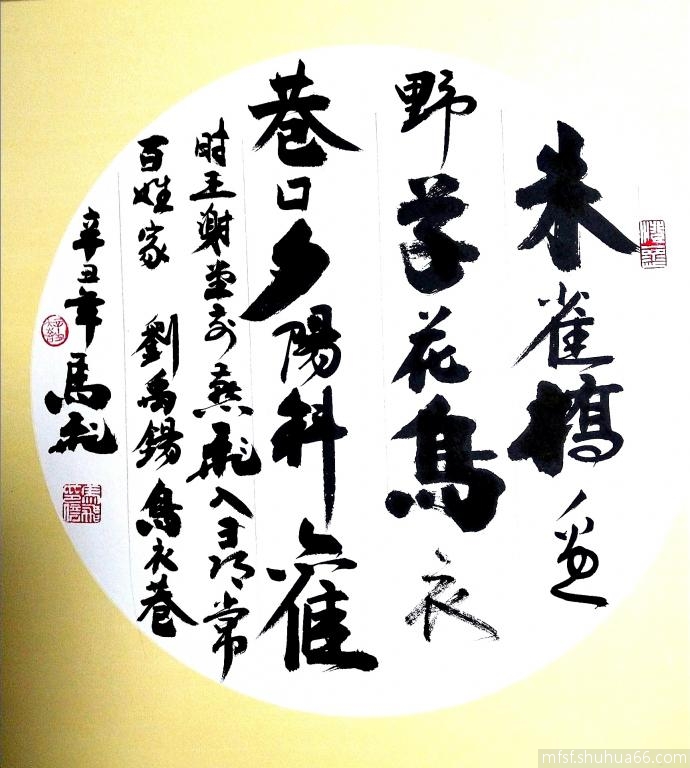 朱雀橋邊
野草花烏衣
巷口夕陽斜舊
時王謝堂前燕飛入尋常
百姓家 劉禹錫 烏衣巷
辛丑年 馬飛
mfsf.shuhua66.com